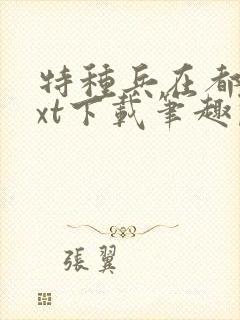 特種兵在都
xt下載筆趣
張翼